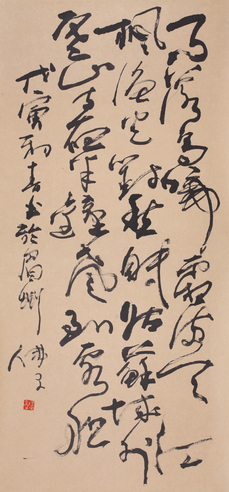 月落烏啼霜满天江
枫渔火對愁眠姑蘇城外
寒山寺夜半鐘聲到客船
戊寅初春书於眉州